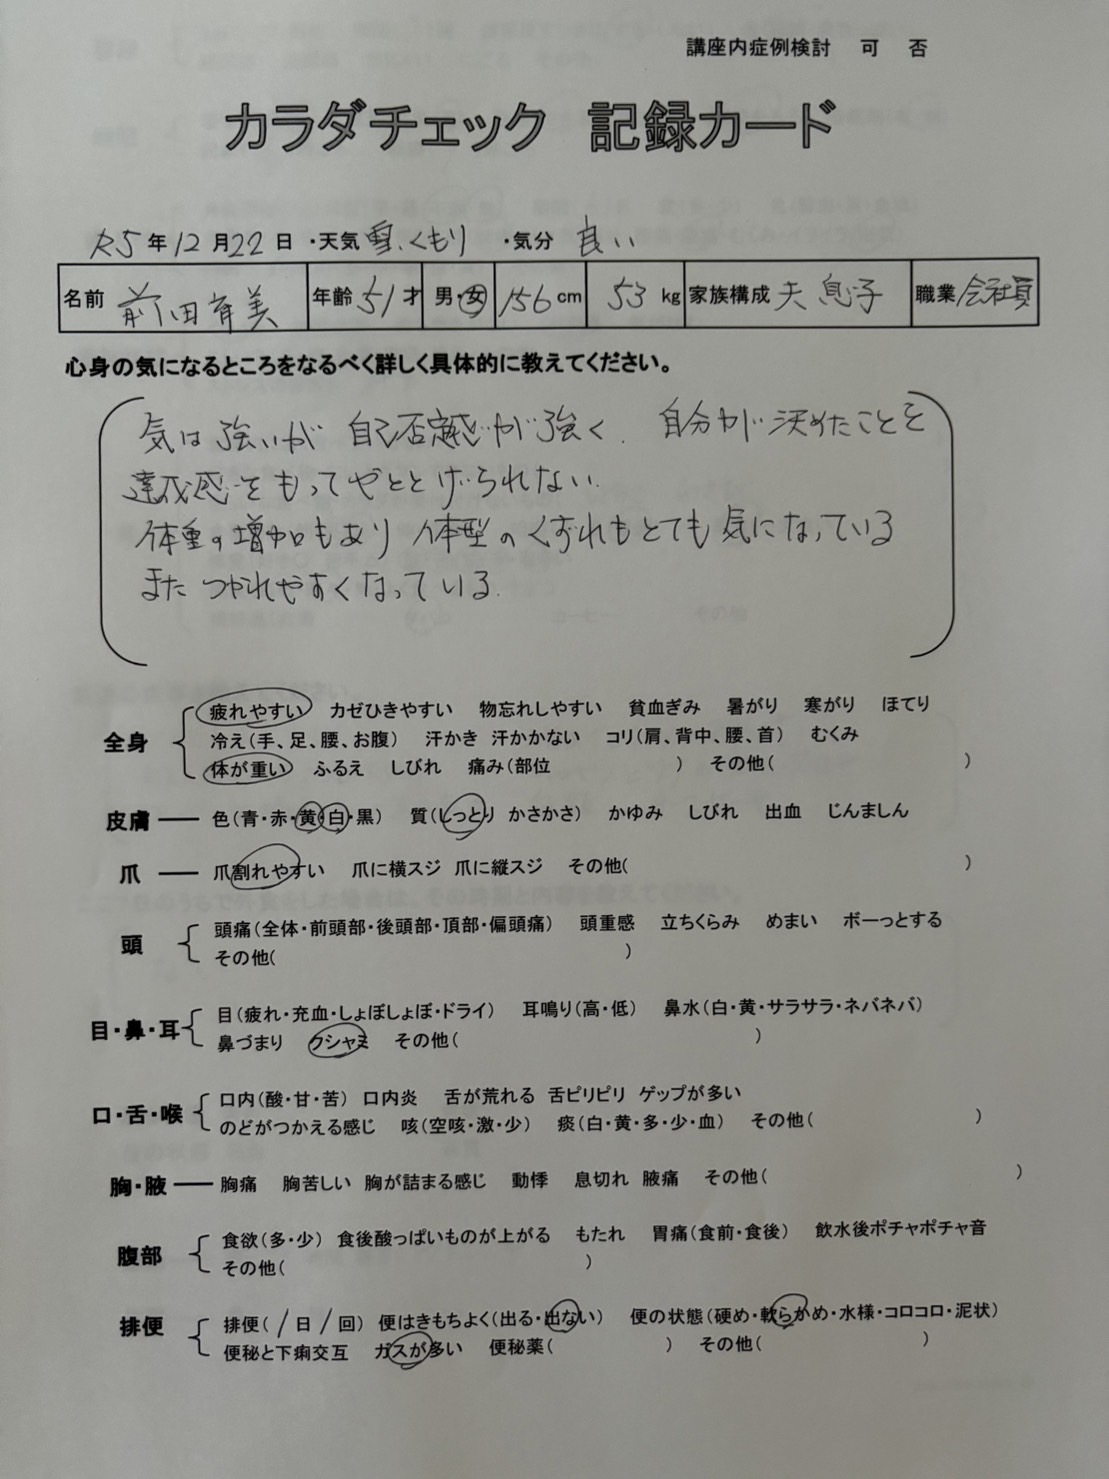 講座内症例検討 可 否
カラダチェック 記録カード
R5年12月22日 ・天気 雪、くもり ・気分 良い
名前 前田育美 年齢 51才 男・女 156cm 53kg 家族構成 夫 息子 職業 会社員
心身の気になるところをなるべく詳しく具体的に教えてください。
気は強いが 自己否定感が強く、自分が決めたことを
達成感をもってやりとげられない
体重の増加もあり 体型のくずれもとても気になっている
また つかれやすくなっている。
全身 疲れやすい カゼひきやすい 物忘れしやすい 貧血ぎみ 暑がり 寒がり ほてり
冷え(手、足、腰、お腹) 汗かき 汗かかない コリ(肩、背中、腰、首) むくみ
体が重い ふるえ しびれ 痛み(部位 ) その他( )
皮膚 ── 色(青・赤・黄・白・黒) 質(しっとり かさかさ) かゆみ しびれ 出血 じんましん
爪 ── 爪割れやすい 爪に横スジ 爪に縦スジ その他( )
頭 頭痛(全体・前頭部・後頭部・頂部・偏頭痛) 頭重感 立ちくらみ めまい ボーっとする
その他( )
目・鼻・耳 目(疲れ・充血・しょぼしょぼ・ドライ) 耳鳴り(高・低) 鼻水(白・黄・サラサラ・ネバネバ)
鼻づまり クシャミ その他( )
口・舌・喉 口内(酸・甘・苦) 口内炎 舌が荒れる 舌ピリピリ ゲップが多い
のどがつかえる感じ 咳(空咳・激・少) 痰(白・黄・多・少・血) その他( )
胸・腋 ── 胸痛 胸苦しい 胸が詰まる感じ 動悸 息切れ 腋痛 その他( )
腹部 食欲(多・少) 食後酸っぱいものが上がる もたれ 胃痛(食前・食後) 飲水後ポチャポチャ音
その他( )
排便 排便(1日1回) 便はきもちよく(出る・出ない) 便の状態(硬め・軟らかめ・水様・コロコロ・泥状)
便秘と下痢交互 ガスが多い 便秘薬( ) その他( )